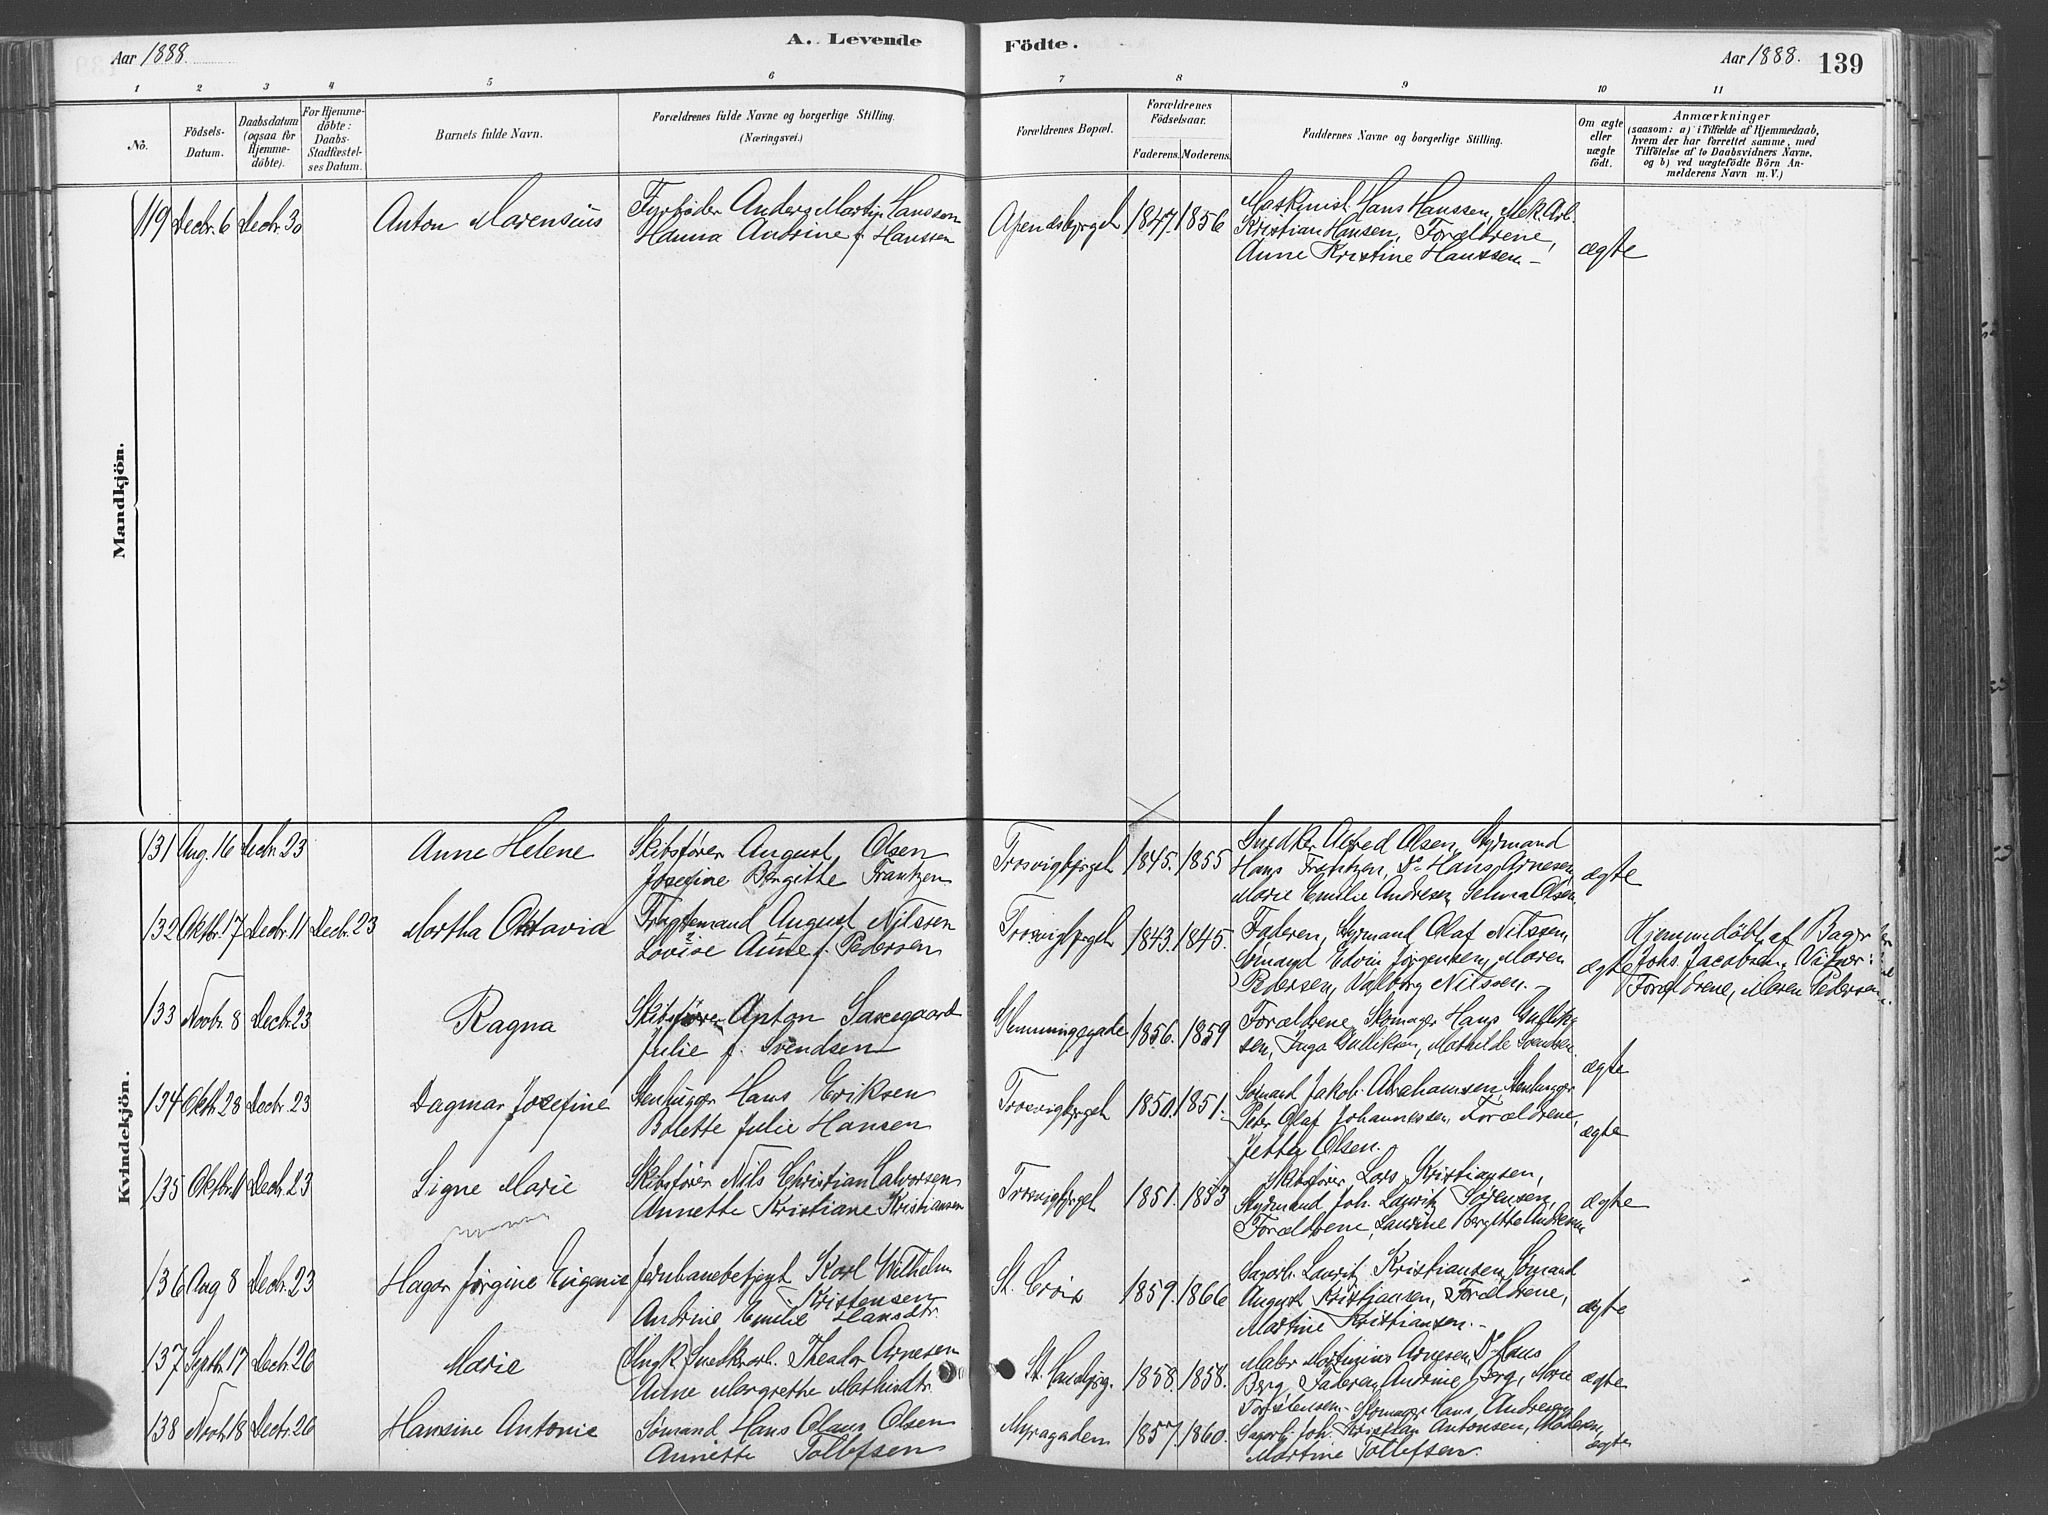 Aar 1888.
A. Levende
Födte.
Aar 1888.
139
1 2 3 4 5 6 7 8 9 10 11
No.
Födsels-Datum.
Daabsdatum (ogsaa for Hjemme-döbte).
For Hjemme-döbte: Daabs-Stadfæstel-ses Datum.
Barnets fulde Navn.
Forældrenes fulde Navne og borgerlige Stilling.
(Næringsvei.)
Forældrenes Bopæl.
Forældrenes Födselsaar.
Faderens. Moderens.
Faddernes Navne og borgerlige Stilling.
Om ægte eller uægte födt.
Anmærkninger
(saasom: a) i Tilfælde af Hjemmedaab,
hvem der har forrettet samme, med
Tilföielse af to Daabsvidners Navne.
og b) ved uægtefödte Börn An-
melderens Navn m. V.)
Mandkjön.
119 Decbr. 6 Decbr. 30 Anton Marensius
Fyrbøder Anders Martin Hanssen
Hanna Andrine f. Hanssen
1847. 1856
Maskinist Hans Hanssen, Mek. Arb.
Kristian Hansen, Forældrene,
Anne Kristine Hanssen
ægte
Kvindekjön.
131 Aug. 16 Decbr. 23 Anne Helene
Skibsfører August Olsen
Josefine Bergitte Frantzen
Trosvigbjerget 1845. 1855
Snedker Alfred Olsen, Styrmand
Hans Frantzen, Do Hans Arnesen,
Marie Emilie Andresen, Selma Olsen.
ægte
132 Oktbr. 17 Decbr. 11 Decbr. 23 Martha Oktavia
Fragtemand August Nilssen
Lovise Anne f. Pedersen
Trosvigbjerget 1843. 1845.
Faderen, Styrmand Olaf Nilssen,
Sømand Edvin Jørgensen, Maren
Pedersen, Valborg Nilssen.
ægte
Hjemmedöbt af Bager
Johs. Jacobsen. Vidner:
Forældrene, Maren Pedersen
133 Novbr. 8 Decbr. 23 Ragna
Skibsfører Anton Saxegaard
Julie f. Svendsen
1856. 1859
Forældrene, Skomager Hans Gullik-
sen, Inga Gulliksen, Mathilde Svendsen.
ægte
134 Oktbr. 28 Decbr. 23 Dagmar Josefine
Stenhugger Hans Eriksen
Bolette Julie Hansen
Trosvigbjerget 1850. 1851.
Sømand Jakob Abrahamsen, Stenhugger
Peter Olaf Johannessen, Forældrene,
Jette Olsen.
ægte
135 Oktbr. 1 Decbr. 23 Signe Marie
Skibsfører Nils Christian Halvorsen
Annette Kristiane Kristiansen
Trosvigbjerget 1851. 1853
Skibsfører Lars Kristiansen,
Styrmand Joh. Lauritz Sørensen,
Forældrene, Laurine Bergitte Andersen
ægte
136 Aug 8 Decbr. 23 Hagar Jørgine Eugenie
Jernbanebetjent Karl Wilhelm
Kristensen
Andrine Emilie Hansdtr.
St. Croix 1859. 1866
Sagarb. Lauritz Kristiansen, Sømand
August Kristiansen, Forældrene,
Martine Kristiansen.
ægte
137 Septbr. 17 Decbr. 26 Marie
Ungk. Snedkerarb. Theodor Arnesen
Anne Margrethe Mathisdtr.
1858. 1858.
Maler Martinius Arnesen, Do Hans
Berg, Faderen, Andrine Berg, Marie
Torstensen.
ægte
138 Novbr. 18 Decbr. 26 Hansine Antonie
Sømand Hans Olaus Olsen
Annette Tollefsen
Myragaden 1857. 1860.
Skomager Hans Andresen,
Sagarb. Joh. Kristian Antonsen, Moderen,
Martine Tollefsen.
ægte